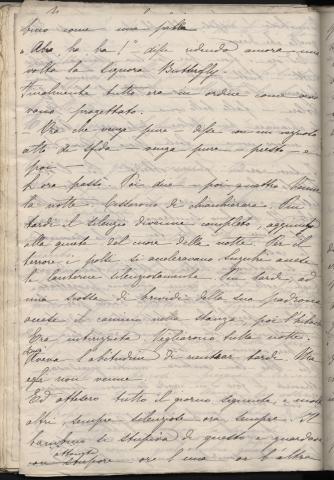 fino come una
"Aha, ha ha!" disse ridendo ancora una
volta la Signora Butterfly.
Finalmente tutto era in ordine come ave-
vano progettato.
- Ora che venga pure - disse con un
atto di sfida - venga pure - presto - e
poi -
L'ora passò. Poi due - poi quattro. Venne
la notte. Cessarono di chiacchierare. Più
tardi il silenzio divenne completo,
alla quiete del cuore della notte. Per il
terrore i polsi si acceleravano. Suzuki accese
le lanterne silenziosamente. Più tardi, ad
una scossa di brividi della sua padrona
accese il camino nella stanza poi l'hibachi
Era intirizzita. Vegliarono tutta notte.
Aveva l'abitudine di rientrar tardi. Ma
egli non venne.
Ed attesero tutto il giorno seguente, e molti
altri, sempre silenziose ora sempre. Il
bambino si stupiva di questo e guardava
con attonito stupore ora l'una or l'altra